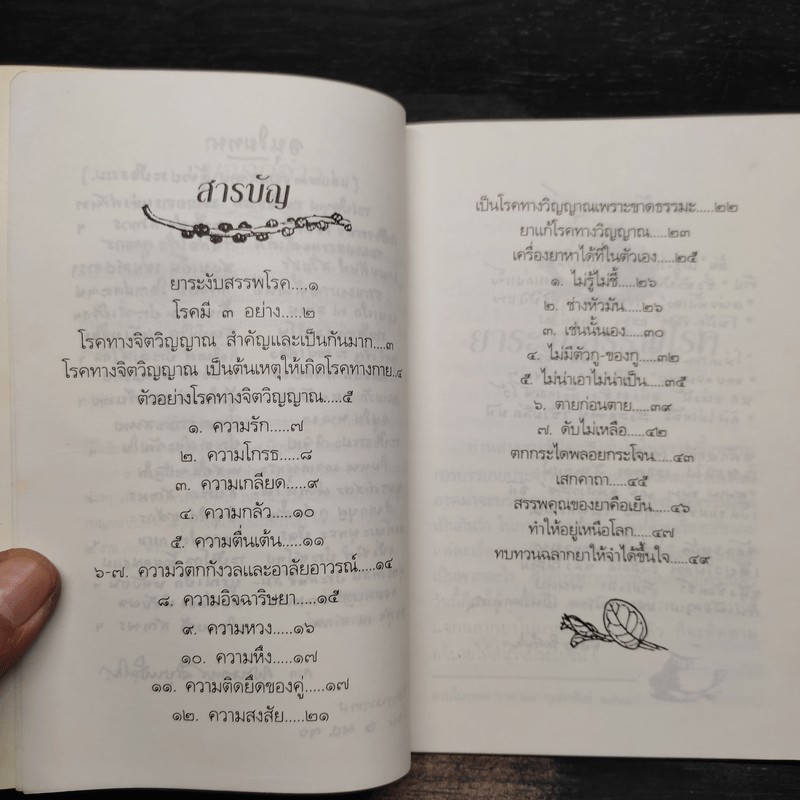 สารบัญ
ยาระงับสรรพโรค....๑
โรคมี ๓ อย่าง.....๒
โรคทางจิตวิญญาณ สำคัญและเป็นกันมาก....๓
โรคทางจิตวิญญาณ เป็นต้นเหตุให้เกิดโรคทางกาย..๔
ตัวอย่างโรคทางจิตวิญญาณ.....๕
๑. ความรัก.....๗
๒. ความโกรธ.....๘
๓. ความเกลียด.....๙
๔. ความกลัว.....๑๐
๕. ความตื่นเต้น.....๑๑
๖-๗. ความวิตกกังวลและอาลัยอาวรณ์.....๑๔
๘. ความอิจฉาริษยา.....๑๕
๙. ความหวง.....๑๖
๑๐. ความหึง.....๑๗
๑๑. ความติดยึดของคู่.....๑๗
๑๒. ความสงสัย.....๒๑
เป็นโรคทางวิญญาณเพราะขาดธรรมะ.....๒๒
ยาแก้โรคทางวิญญาณ.....๒๓
เครื่องยาหาได้ที่ในตัวเอง.....๒๕
๑. ไม่รู้ไม่ชี้.....๒๖
๒. ช่างหัวมัน.....๒๖
๓. เช่นนั้นเอง.....๓๐
๔. ไม่มีตัวกู-ของกู.....๓๒
๕. ไม่น่าเอาไม่น่าเป็น.....๓๕
๖. ตายก่อนตาย.....๓๙
๗. ดับไม่เหลือ.....๔๒
ตกกระไดพลอยกระโจน.....๔๓
เสกคาถา.....๔๕
สรรพคุณของยาคือเย็น.....๔๖
ทำให้อยู่เหนือโลก.....๔๗
ทบทวนฉลากยาให้จำได้ขึ้นใจ.....๔๙